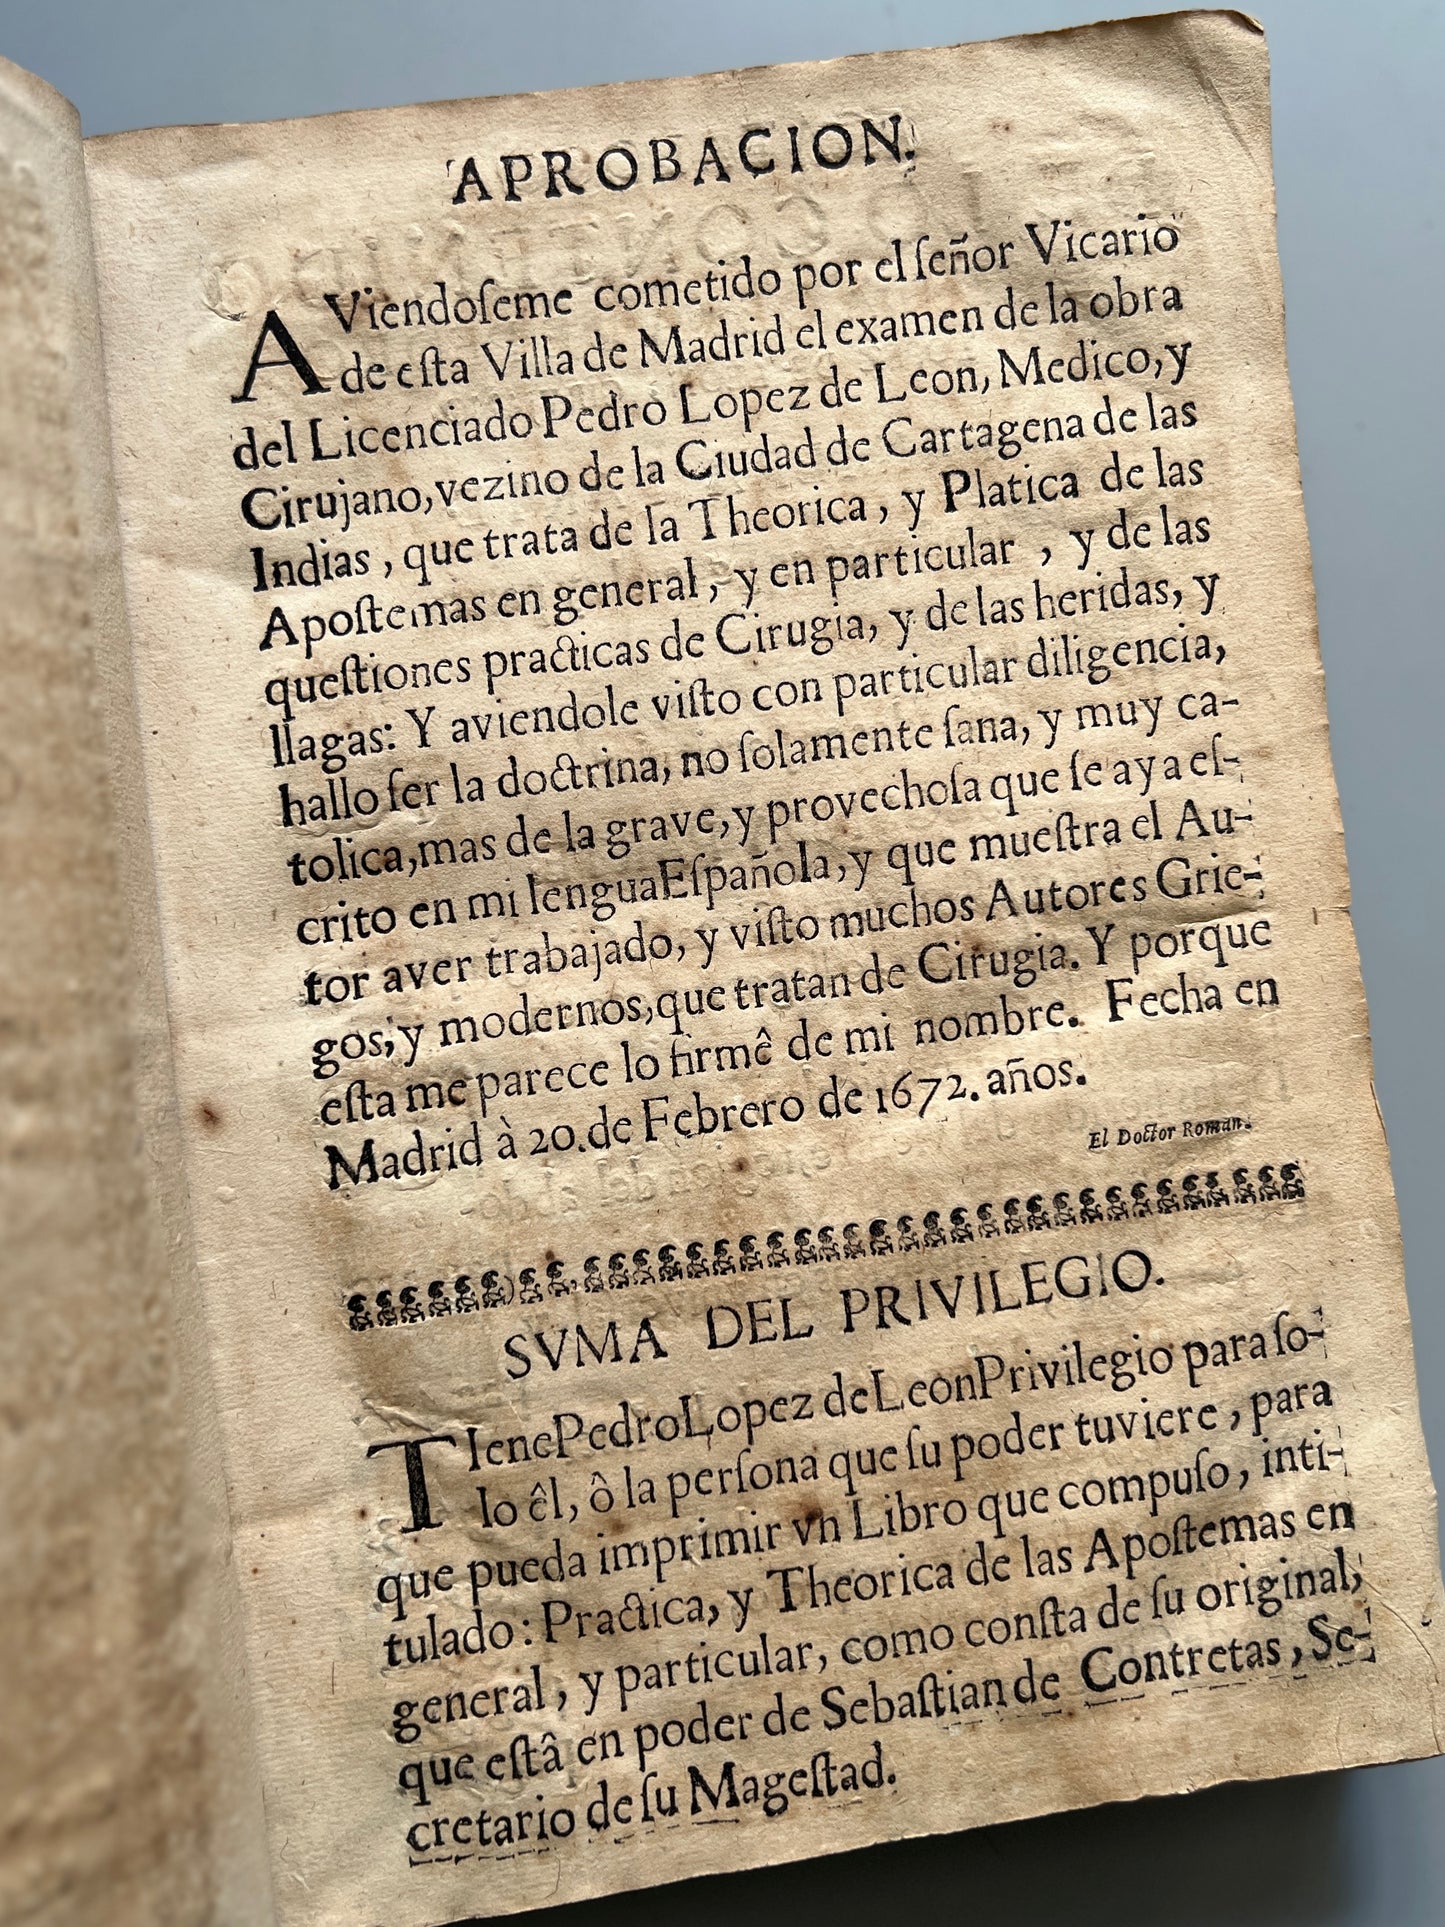 APROBACION.
AViendoſeme cometido por el ſeñor Vicario
de eſta Villa de Madrid el examen de la obra
del Licenciado Pedro Lopez de Leon, Medico, y
Cirujano, vezino de la Ciudad de Cartagena de las
Indias, que trata de la Theorica, y Platica de las
Apoſtemas en general, y en particular, y de las
queſtiones practicas de Cirugia, y de las heridas, y
llagas: Y aviendole viſto con particular diligencia,
hallo ſer la doctrina, no ſolamente ſana, y muy ca-
tolica, mas de la grave, y provechoſa que ſe aya eſ-
crito en mi lengua Eſpañola, y que mueſtra el Au-
tor aver trabajado, y viſto muchos Autores Grie-
gos, y modernos, que tratan de Cirugia. Y porque
eſta me parece lo firmê de mi nombre. Fecha en
Madrid à 20. de Febrero de 1672. años.
El Doctor Roman.
SVMA DEL PRIVILEGIO.
TIene Pedro Lopez de Leon Privilegio para ſo-
lo êl, ô la perſona que ſu poder tuviere, para
que pueda imprimir vn Libro que compuſo, inti-
tulado: Practica, y Theorica de las Apoſtemas en
general, y particular, como conſta de ſu original,
que eſtâ en poder de Sebaſtian de Contretas, Se-
cretario de ſu Mageſtad.